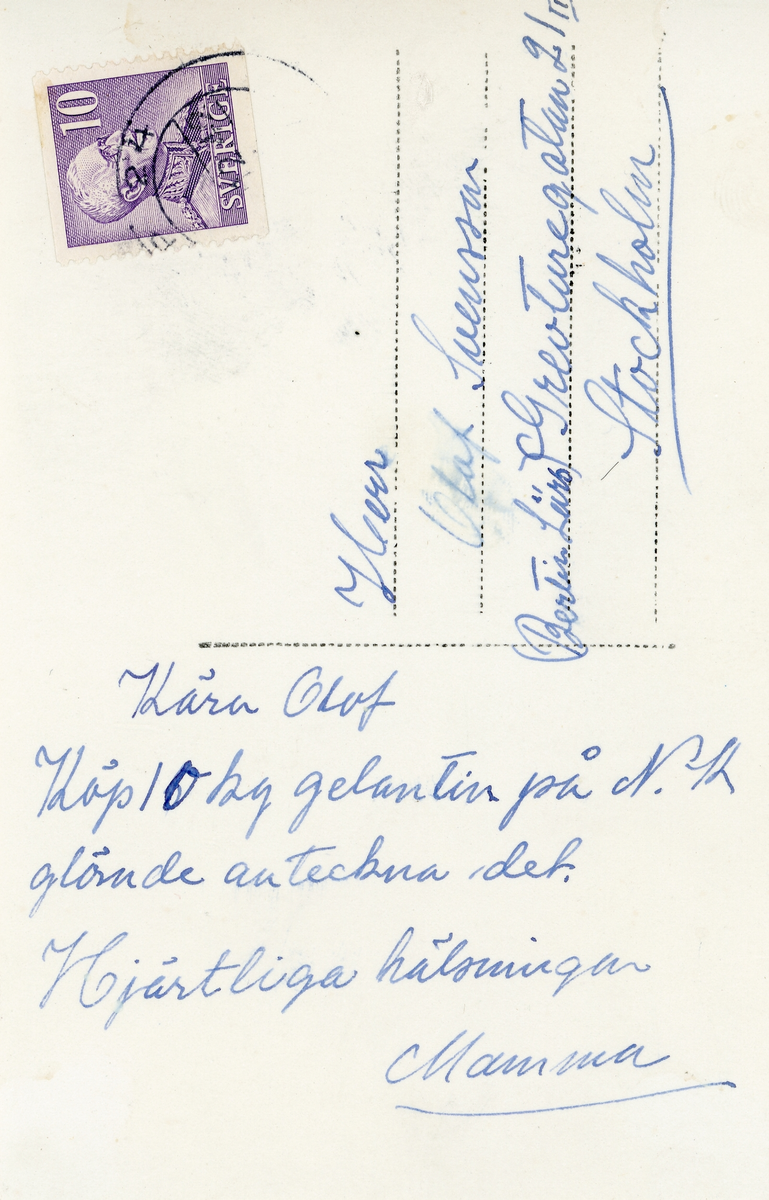 10
SVERIGE
Herr
Olof Svensson
Bertin Lärs Grevturegatan 21 III
Stockholm
Kära Olof
Köp 10 kg gelantin på N.K
glömde anteckna det.
Hjärtliga hälsningar
Mamma